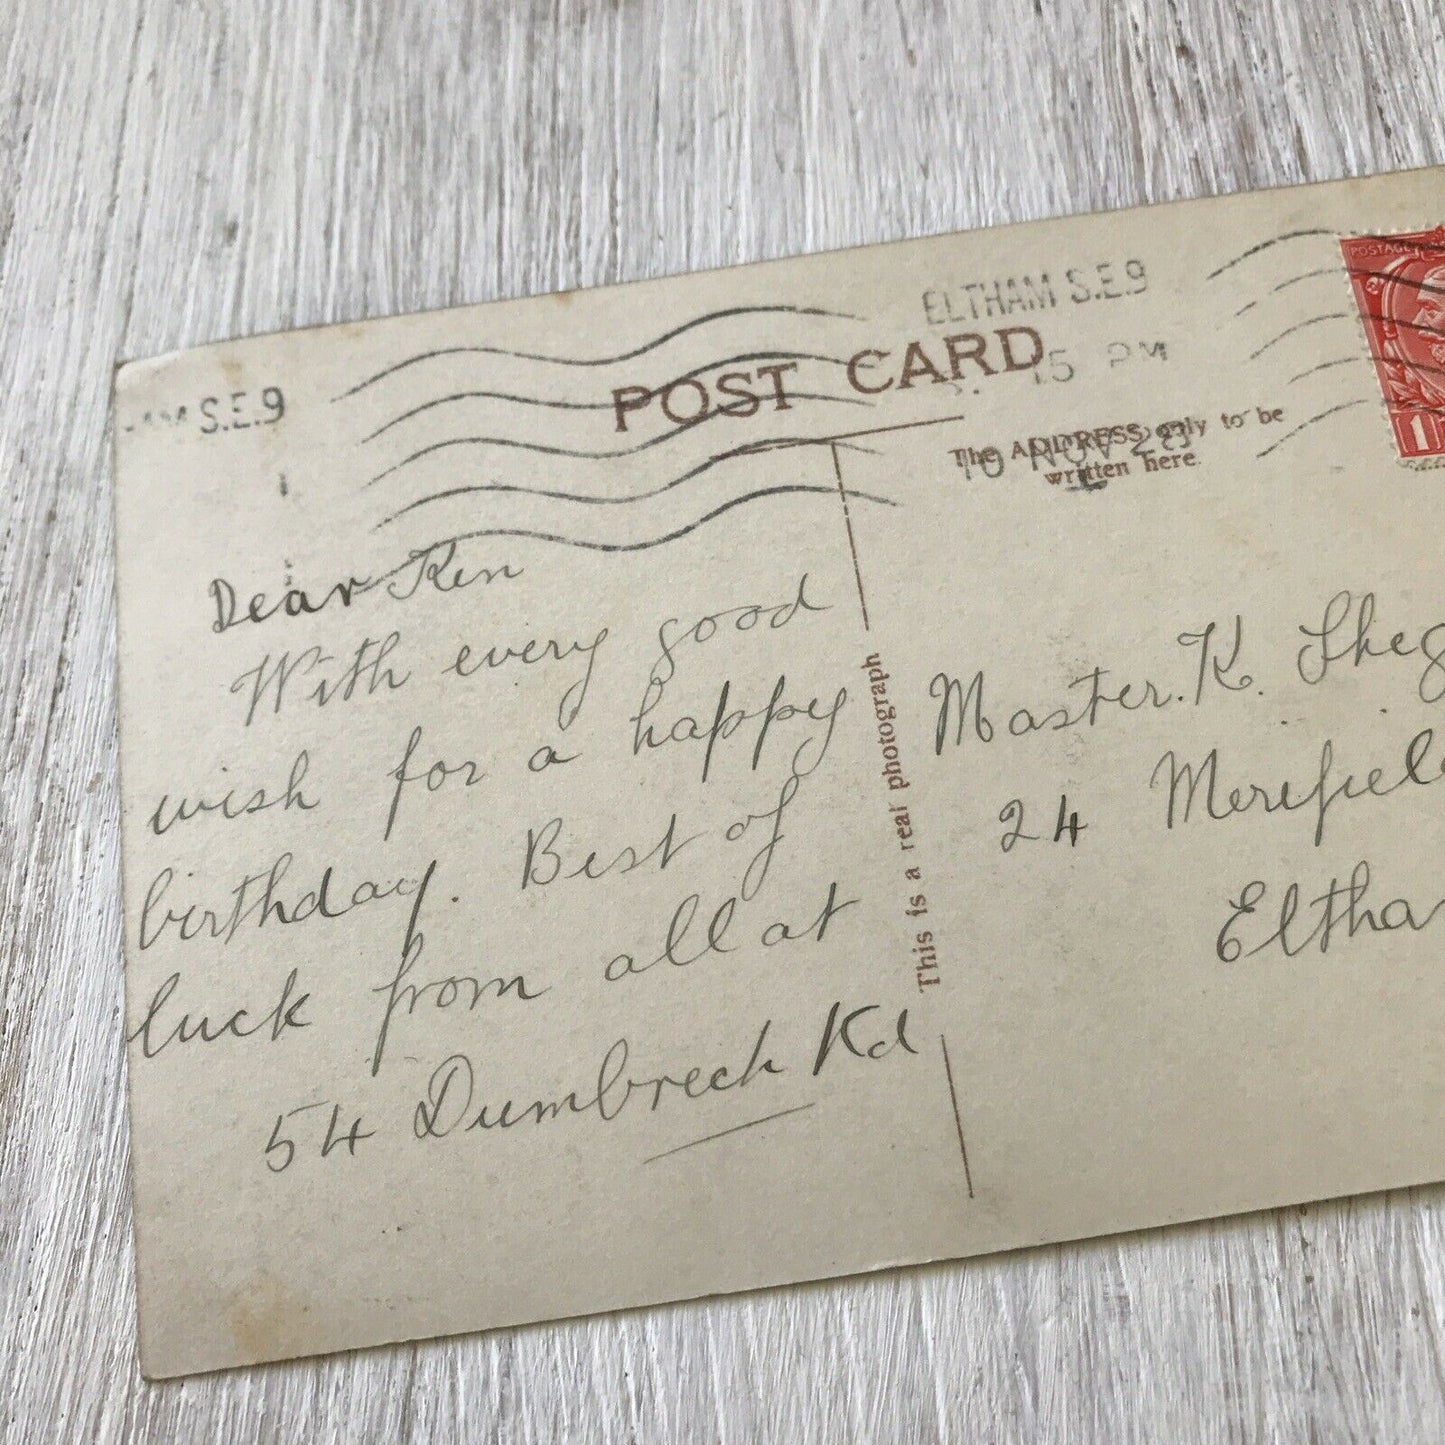 ELTHAM S.E.9
S.E.9
15 PM
10 NOV 23
POST CARD
The ADDRESS only to be
written here.
POSTAGE
1
Dear Ken
With every good
wish for a happy
birthday. Best of
luck from all at
54 Dumbreck Rd
This is a real photograph
Master. K. Sheg
24 Merefiel
Eltha